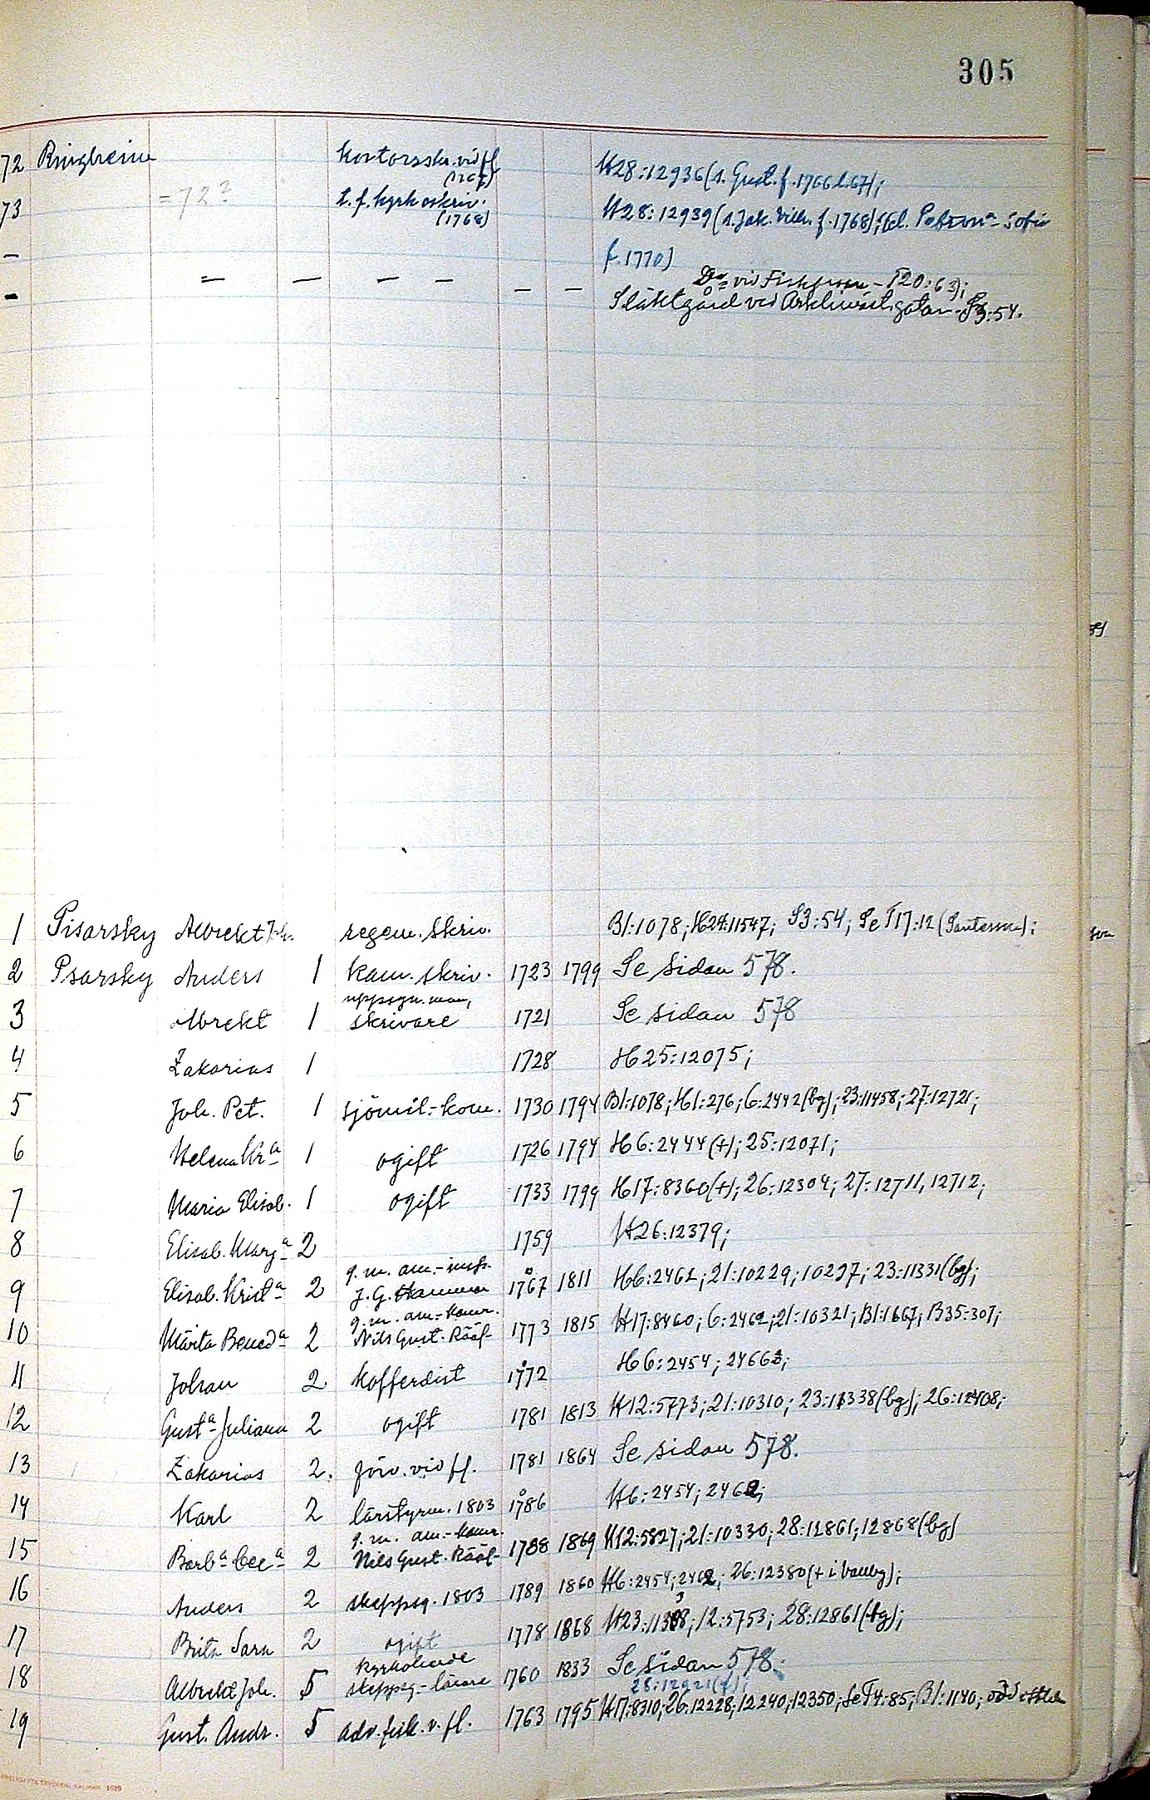 305
72 Ringheim kontorsskr. vid fl. (1767) H28:12936 (s. Gust. f. 1766 2/67);
73 =72? t.f. kyrkoskriv. (1768) H28:12939 (s. Jak. Vilh. f. 1768); (d. Petron.a Sofia
f. 1770)
D:o vid Fisktorget - T20:63);
— — — — — — — Släktgård vid Arklimästigatan - S3:54.
1 Pisarsky Albrekt Joh. regem. skriv. B1:1078; H24:11547; S3:54; Se T17:12 (Santesson);
2 Psarsky Anders 1 kam. skriv. 1723 1799 Se sidan 578.
3 Albrekt 1 uppsyn. man, skrivare 1721 Se sidan 578
4 Zakarias 1 1728 H25:12075;
5 Joh. Pet. 1 sjömil.-kom. 1730 1794 B1:1078; H1:276; 6:2442 (bg); 23:11458; 27:12721;
6 Helena Kr.a 1 ogift 1726 1794 H6:2444 (+); 25:12071;
7 Maria Elisab. 1 ogift 1733 1799 H17:8360 (+); 26:12304; 27:12711, 12712;
8 Elisab. Marg.a 2 1759 H26:12379;
9 Elisab. Krist.a 2 g. m. am.-insp. J. G. Hammar 1767 1811 H6:2462; 21:10229; 10237; 23:11331 (bg);
10 Märta Bened.a 2 g. m. am.-kamr. Nils Gust. Rääf 1773 1815 H17:8460; 6:2462; 21:10321; B1:1667; B35:307;
11 Johan 2 kofferdist 1772 H6:2454; 24663;
12 Gust.a Juliana 2 ogift 1781 1813 H12:5773; 21:10310; 23:11338 (bg); 26:12408;
13 Zakarias 2. förv. vid fl. 1781 1864 Se sidan 578.
14 Karl 2 lärstyrm. 1803 1786 H6:2454; 2462;
15 Barb.a Cec.a 2 g. m. am.-kamr. Nils Gust. Rääf 1788 1869 H12:5827; 21:10330; 28:12861; 12868 (bg)
16 Anders 2 skeppsg. 1803 1789 1860 H6:2454; 2462; 26:12380 (+ i bomby);
17 Brita Sara 2 ogift 1778 1868 H23:11338; 12:5753; 28:12861 (bg);
18 Albrekt Joh. 5 kyrkoherde skeppsg.-lärare 1760 1833 Se sidan 578.
28:12921 (+);
19 Gust. Andr. 5 adv. fisk. v. fl. 1763 1795 H17:8310; 26:12228; 12240; 12350; Se T4:85; B1:1140;